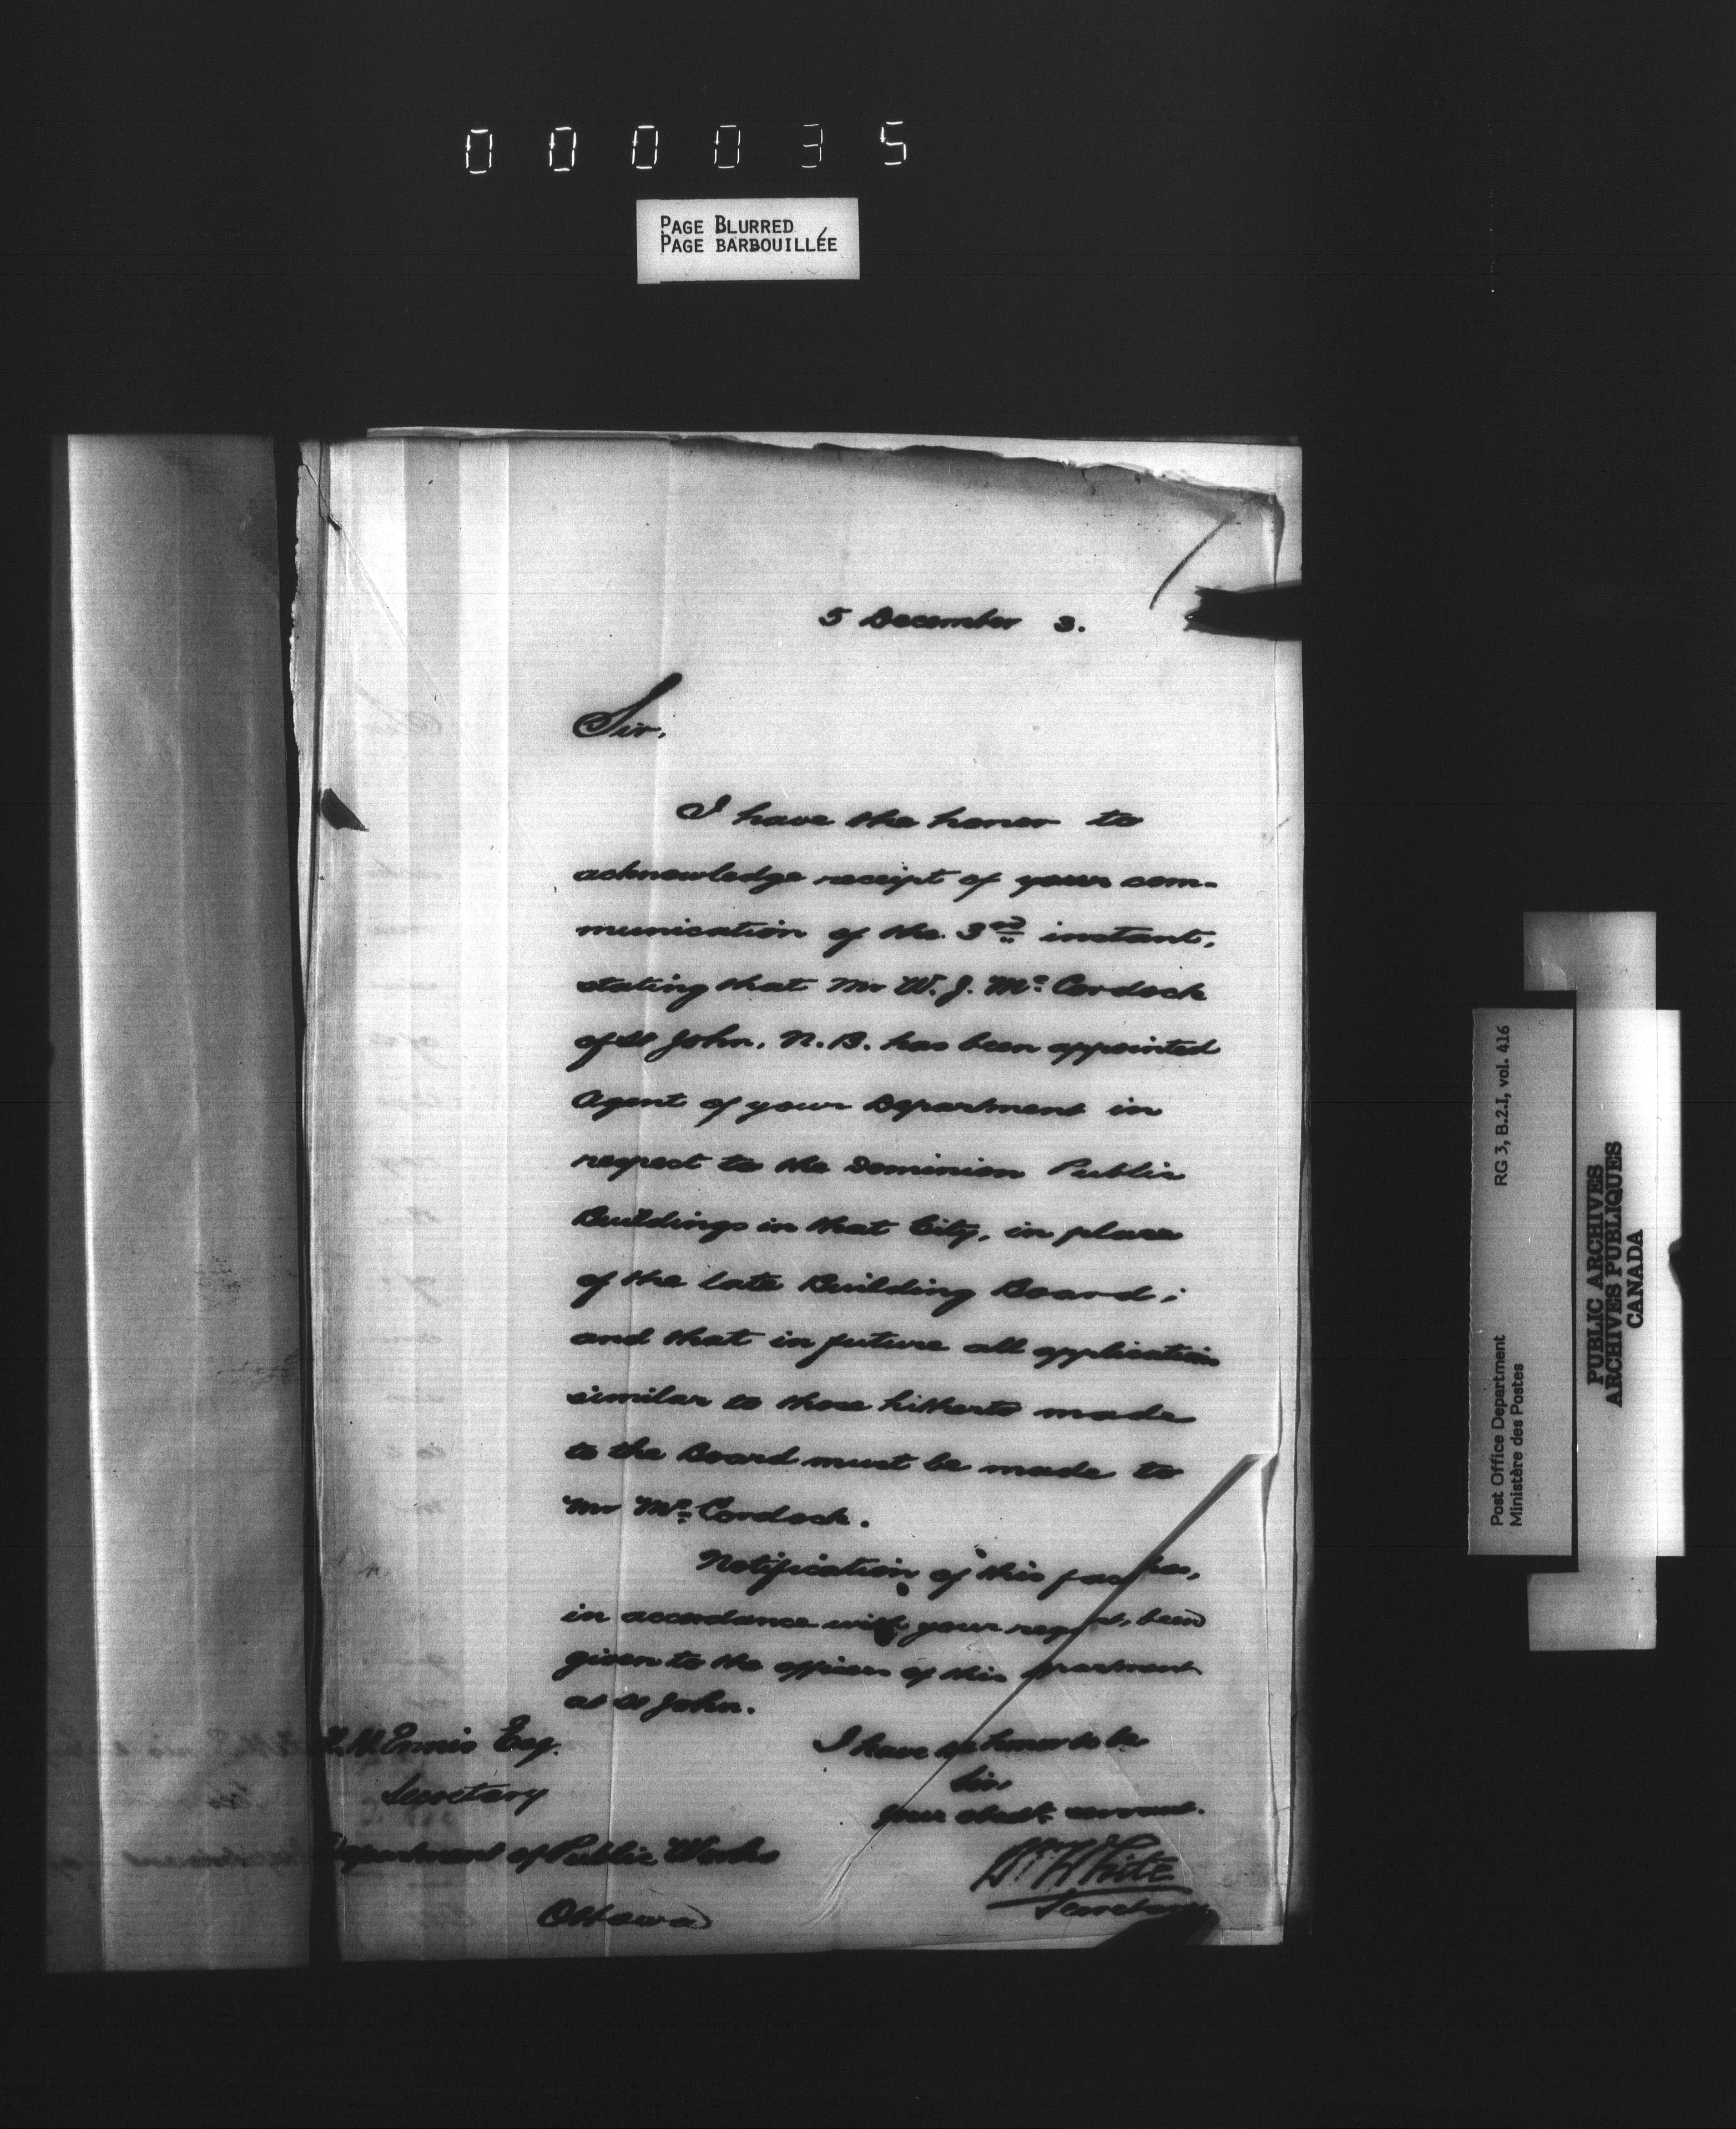 000035
PAGE BLURRED
PAGE BARBOUILLÉE
5 December 3.
Sir,
I have the honor to
acknowledge receipt of your com-
munication of the 3rd instant,
stating that Mr W. J. Mc Cordock
of St John, N.B. has been appointed
Agent of your Department in
respect to the Dominion Public
Buildings in that City, in place
of the late Building Board;
and that in future all applications
similar to those hitherto made
to the Board must be made to
Mr Mc Cordock.
Notification of this fac has,
in accordance with your req st, been
given to the officers of this partment
at St John.
I have the honor to be
Sir,
your obedt. servant.
Wm White
Secretary
F. H. Ennis Esq.
Secretary
Department of Public Works
Ottawa
Post Office Department RG 3, B.2.I, vol. 416
Ministère des Postes
PUBLIC ARCHIVES
ARCHIVES PUBLIQUES
CANADA